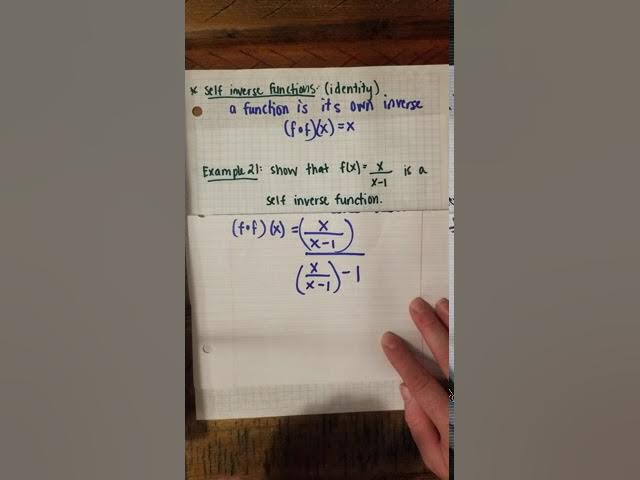 * Self inverse functions: (identity).
a function is its own inverse
(f∘f)(x) = x
Example 21: show that f(x) = x/(x-1) is a
self inverse function.
(f∘f)(x) = (x/(x-1)) / ((x/(x-1)) - 1)